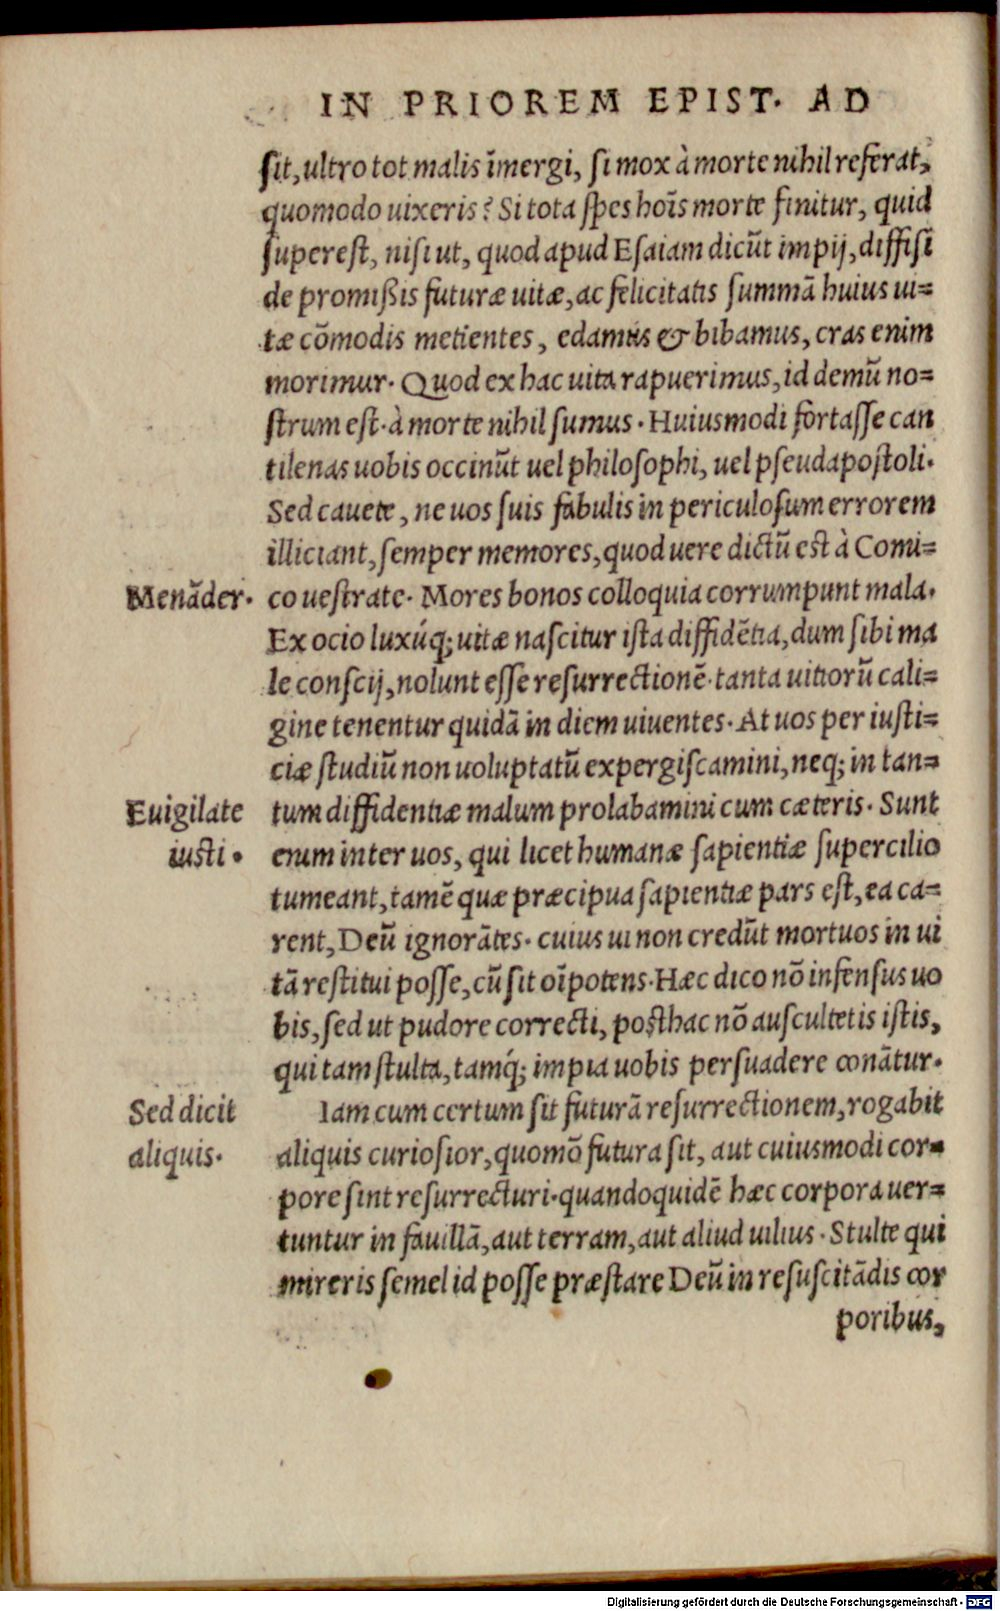 IN PRIOREM EPIST. AD
sit, ultro tot malis īmergi, si mox à morte nihil referat,
quomodo uixeris? Si tota spes hoīs morte finitur, quid
superest, nisi ut, quod apud Esaiam dicūt impij, diffisi
de promißis futuræ uitæ, ac felicitatis summā huius ui=
tæ cōmodis metientes, edamus & bibamus, cras enim
morimur. Quod ex hac uita rapuerimus, id demū no=
strum est. à morte nihil sumus. Huiusmodi fortasse can
tilenas uobis occinūt uel philosophi, uel pseudapostoli.
Sed cauete, ne uos suis fabulis in periculosum errorem
illiciant, semper memores, quod uere dictū est à Comi=
Menāder. co uestrate. Mores bonos colloquia corrumpunt mala.
Ex ocio luxúq; uitæ nascitur ista diffidētia, dum sibi ma
le conscij, nolunt esse resurrectionē. tanta uitiorū cali=
gine tenentur quidā in diem uiuentes. At uos per iusti=
ciæ studiū non uoluptatū expergiscamini, neq; in tan=
Euigilate tum diffidentiæ malum prolabamini cum cæteris. Sunt
iusti. enim inter uos, qui licet humanæ sapientiæ supercilio
tumeant, tamē quæ præcipua sapientiæ pars est, ea ca=
rent, Deū ignorātes. cuius ui non credūt mortuos in ui
tā restitui posse, cū sit oīpotens. Hæc dico nō infensus uo
bis, sed ut pudore correcti, posthac nō auscultetis istis,
qui tam stulta, tamq́; impia uobis persuadere conātur.
Sed dicit Iam cum certum sit futurā resurrectionem, rogabit
aliquis. aliquis curiosior, quomō futura sit, aut cuiusmodi cor=
pore sint resurrecturi. quandoquidē hæc corpora uer=
tuntur in fauillā, aut terram, aut aliud uilius. Stulte qui
mireris semel id posse præstare Deū in resuscitādis cor
poribus,
Digitalisierung gefördert durch die Deutsche Forschungsgemeinschaft - DFG